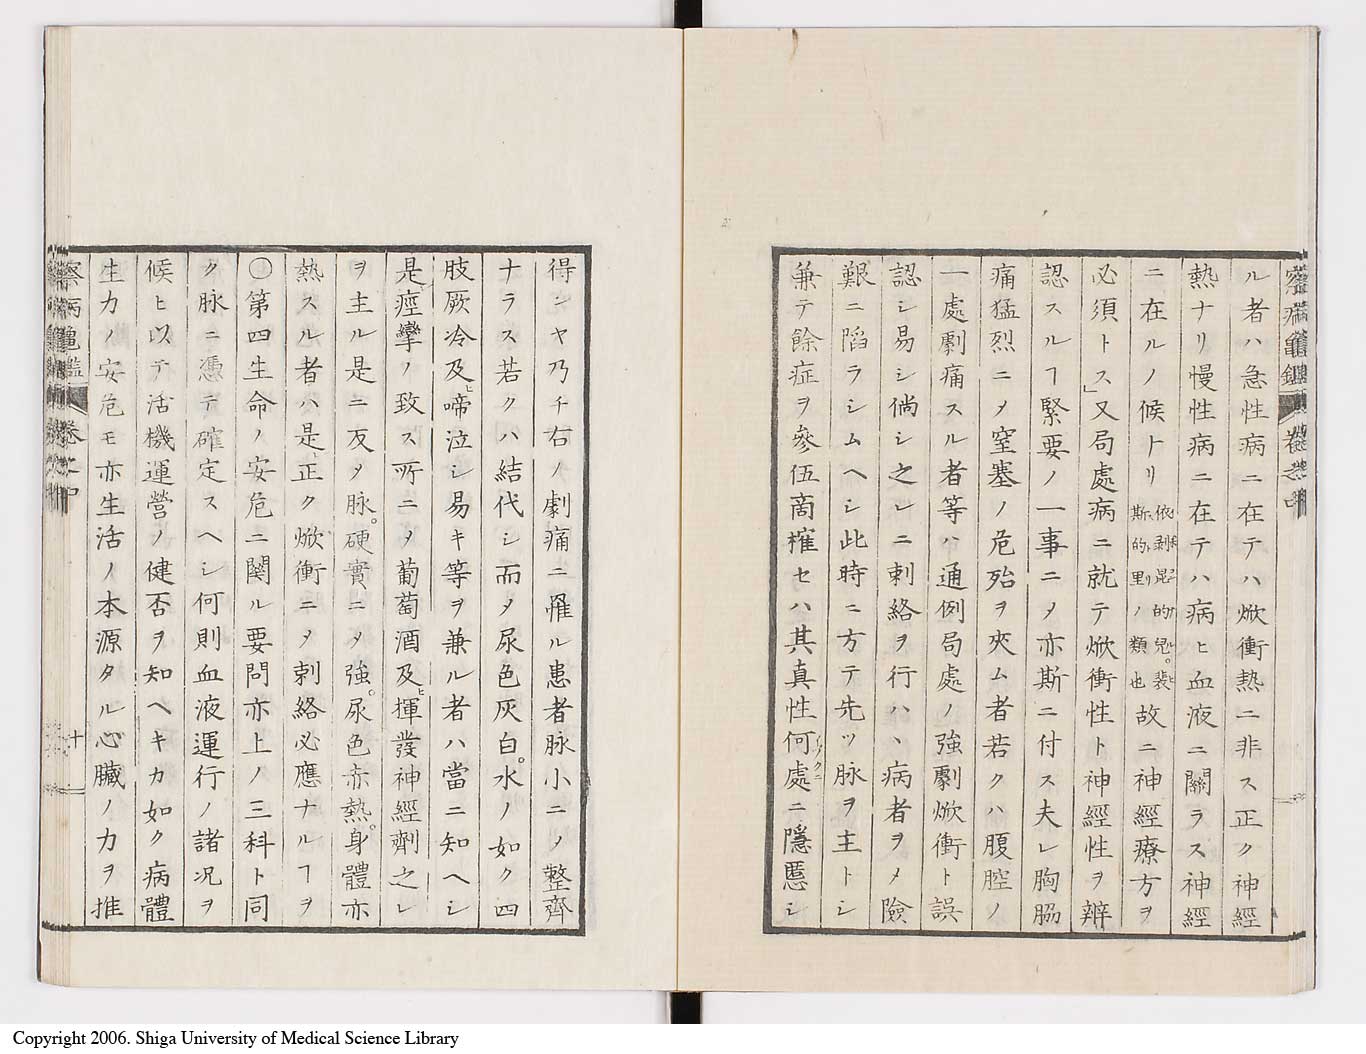 察病龜鑑 卷之中
ル者ハ急性病ニ在テハ焮衝熱ニ非ス正ク神經
熱ナリ慢性病ニ在テハ病ヒ血液ニ關ラス神經
ニ在ルノ候トリ依剥昆的兒。裴斯的里ノ類也故ニ神經療方ヲ
必須トス」又局處病ニ就テ焮衝性ト神經性ヲ辨
認スルヿ緊要ノ一事ニメ亦斯ニ付ス夫レ胸脇
痛猛烈ニメ窒塞ノ危殆ヲ夾ム者若クハ腹腔ノ
一處劇痛スル者等ハ通例局處ノ強劇焮衝ト誤
認シ易シ倘シ之レニ刺絡ヲ行ハヽ病者ヲメ險
艱ニ陷ラシムヘシ此時ニ方テ先ツ脉ヲ主トシ
兼テ餘症ヲ參伍啇榷セハ其真性何處ニ隱慝シ
得ンヤ乃チ右ノ劇痛ニ罹ル患者脉小ニメ整齊
ナラス若クハ結代シ而メ尿色灰白。水ノ如ク四
肢厥冷及ヒ啼泣シ易キ等ヲ兼ル者ハ當ニ知ヘシ
是痙攣ノ致ス所ニメ葡萄酒及ヒ揮發神經劑之レ
ヲ主ル是ニ反メ脉。硬實ニメ強。尿色赤熱。身體亦
熱スル者ハ是正ク焮衝ニメ刺絡必應ナルヿヲ
〇第四生命ノ安危ニ関ル要問亦上ノ三科ト同
ク脉ニ憑テ確定スヘシ何則血液運行ノ諸况ヲ
候ヒ以テ活機運營ノ健否ヲ知ヘキカ如ク病體
生力ノ安危モ亦生活ノ本源タル心臓ノ力ヲ推
察病龜鑑 卷之中
十
Copyright 2006. Shiga University of Medical Science Library